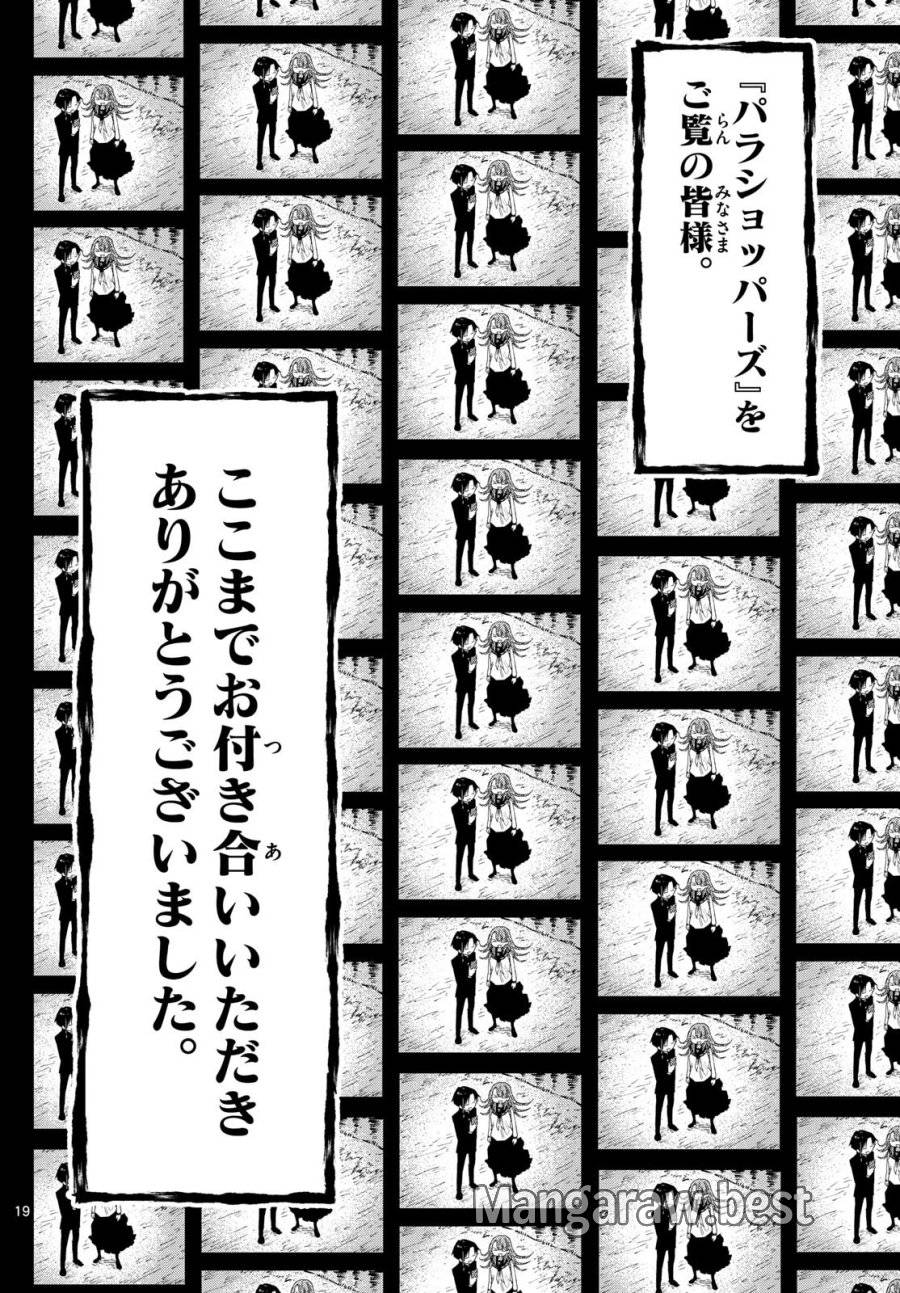 『パラショッパーズ』を
ご覧の皆様。
らん
みなさま
ここまでお付き合いいただき
つ
あ
ありがとうございました。
19
Mangaraw.best